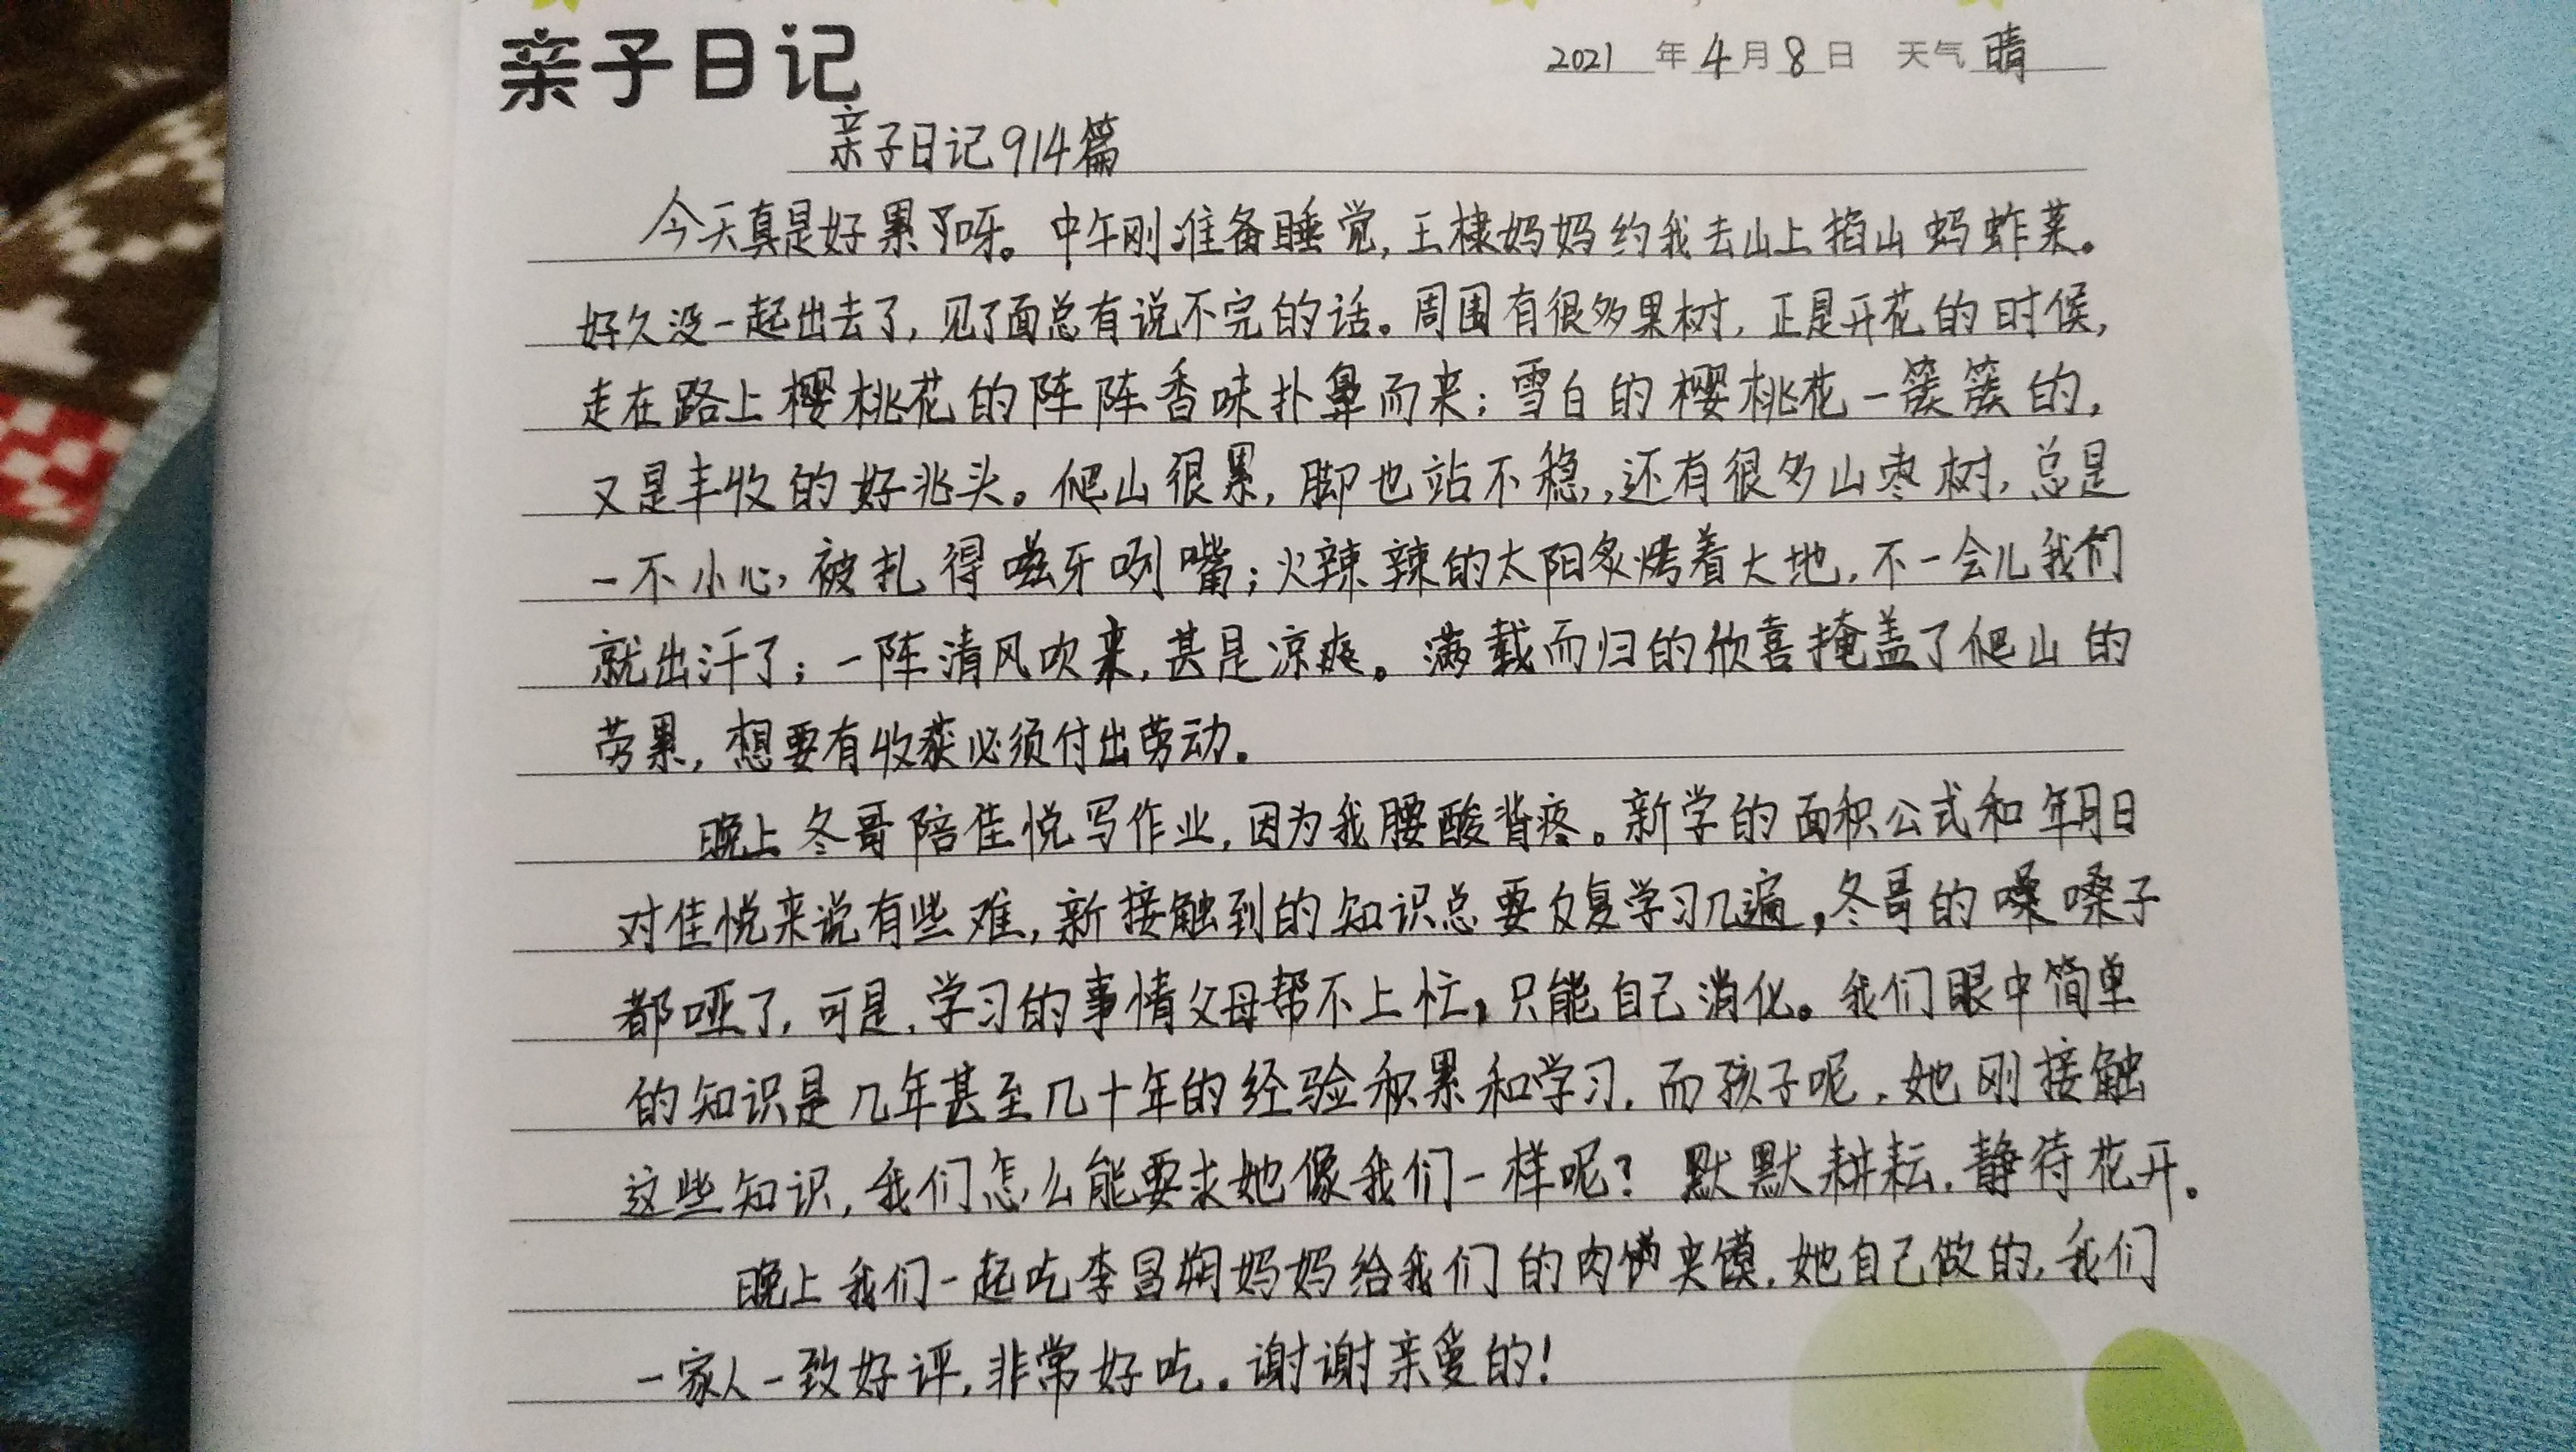 亲子日记
2021 年 4 月 8 日 天气 晴
亲子日记914篇
今天真是好累了呀。中午刚准备睡觉,王棣妈妈约我去山上掐山蚂蚱菜。
好久没一起出去了,见了面总有说不完的话。周围有很多果树,正是开花的时候,
走在路上樱桃花的阵阵香味扑鼻而来;雪白的樱桃花一簇簇的,
又是丰收的好兆头。爬山很累,脚也站不稳,还有很多山枣树,总是
一不小心,被扎得嗞牙咧嘴;火辣辣的太阳炙烤着大地,不一会儿我们
就出汗了;一阵清风吹来,甚是凉爽。满载而归的欣喜掩盖了爬山的
劳累,想要有收获必须付出劳动。
晚上冬哥陪佳悦写作业,因为我腰酸背疼。新学的面积公式和年月日
对佳悦来说有些难,新接触到的知识总要反复学习几遍,冬哥的嗓嗓子
都哑了,可是,学习的事情父母帮不上忙,只能自己消化。我们眼中简单
的知识是几年甚至几十年的经验积累和学习,而孩子呢,她刚接触
这些知识,我们怎么能要求她像我们一样呢?默默耕耘,静待花开。
晚上我们一起吃李昌朔妈妈给我们的肉夹馍,她自己做的,我们
一家人一致好评,非常好吃。谢谢亲爱的!